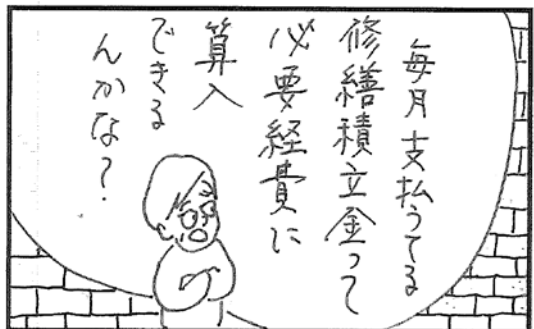 毎月支払うてる
修繕積立金って
必要経費に
算入
できる
んかな？